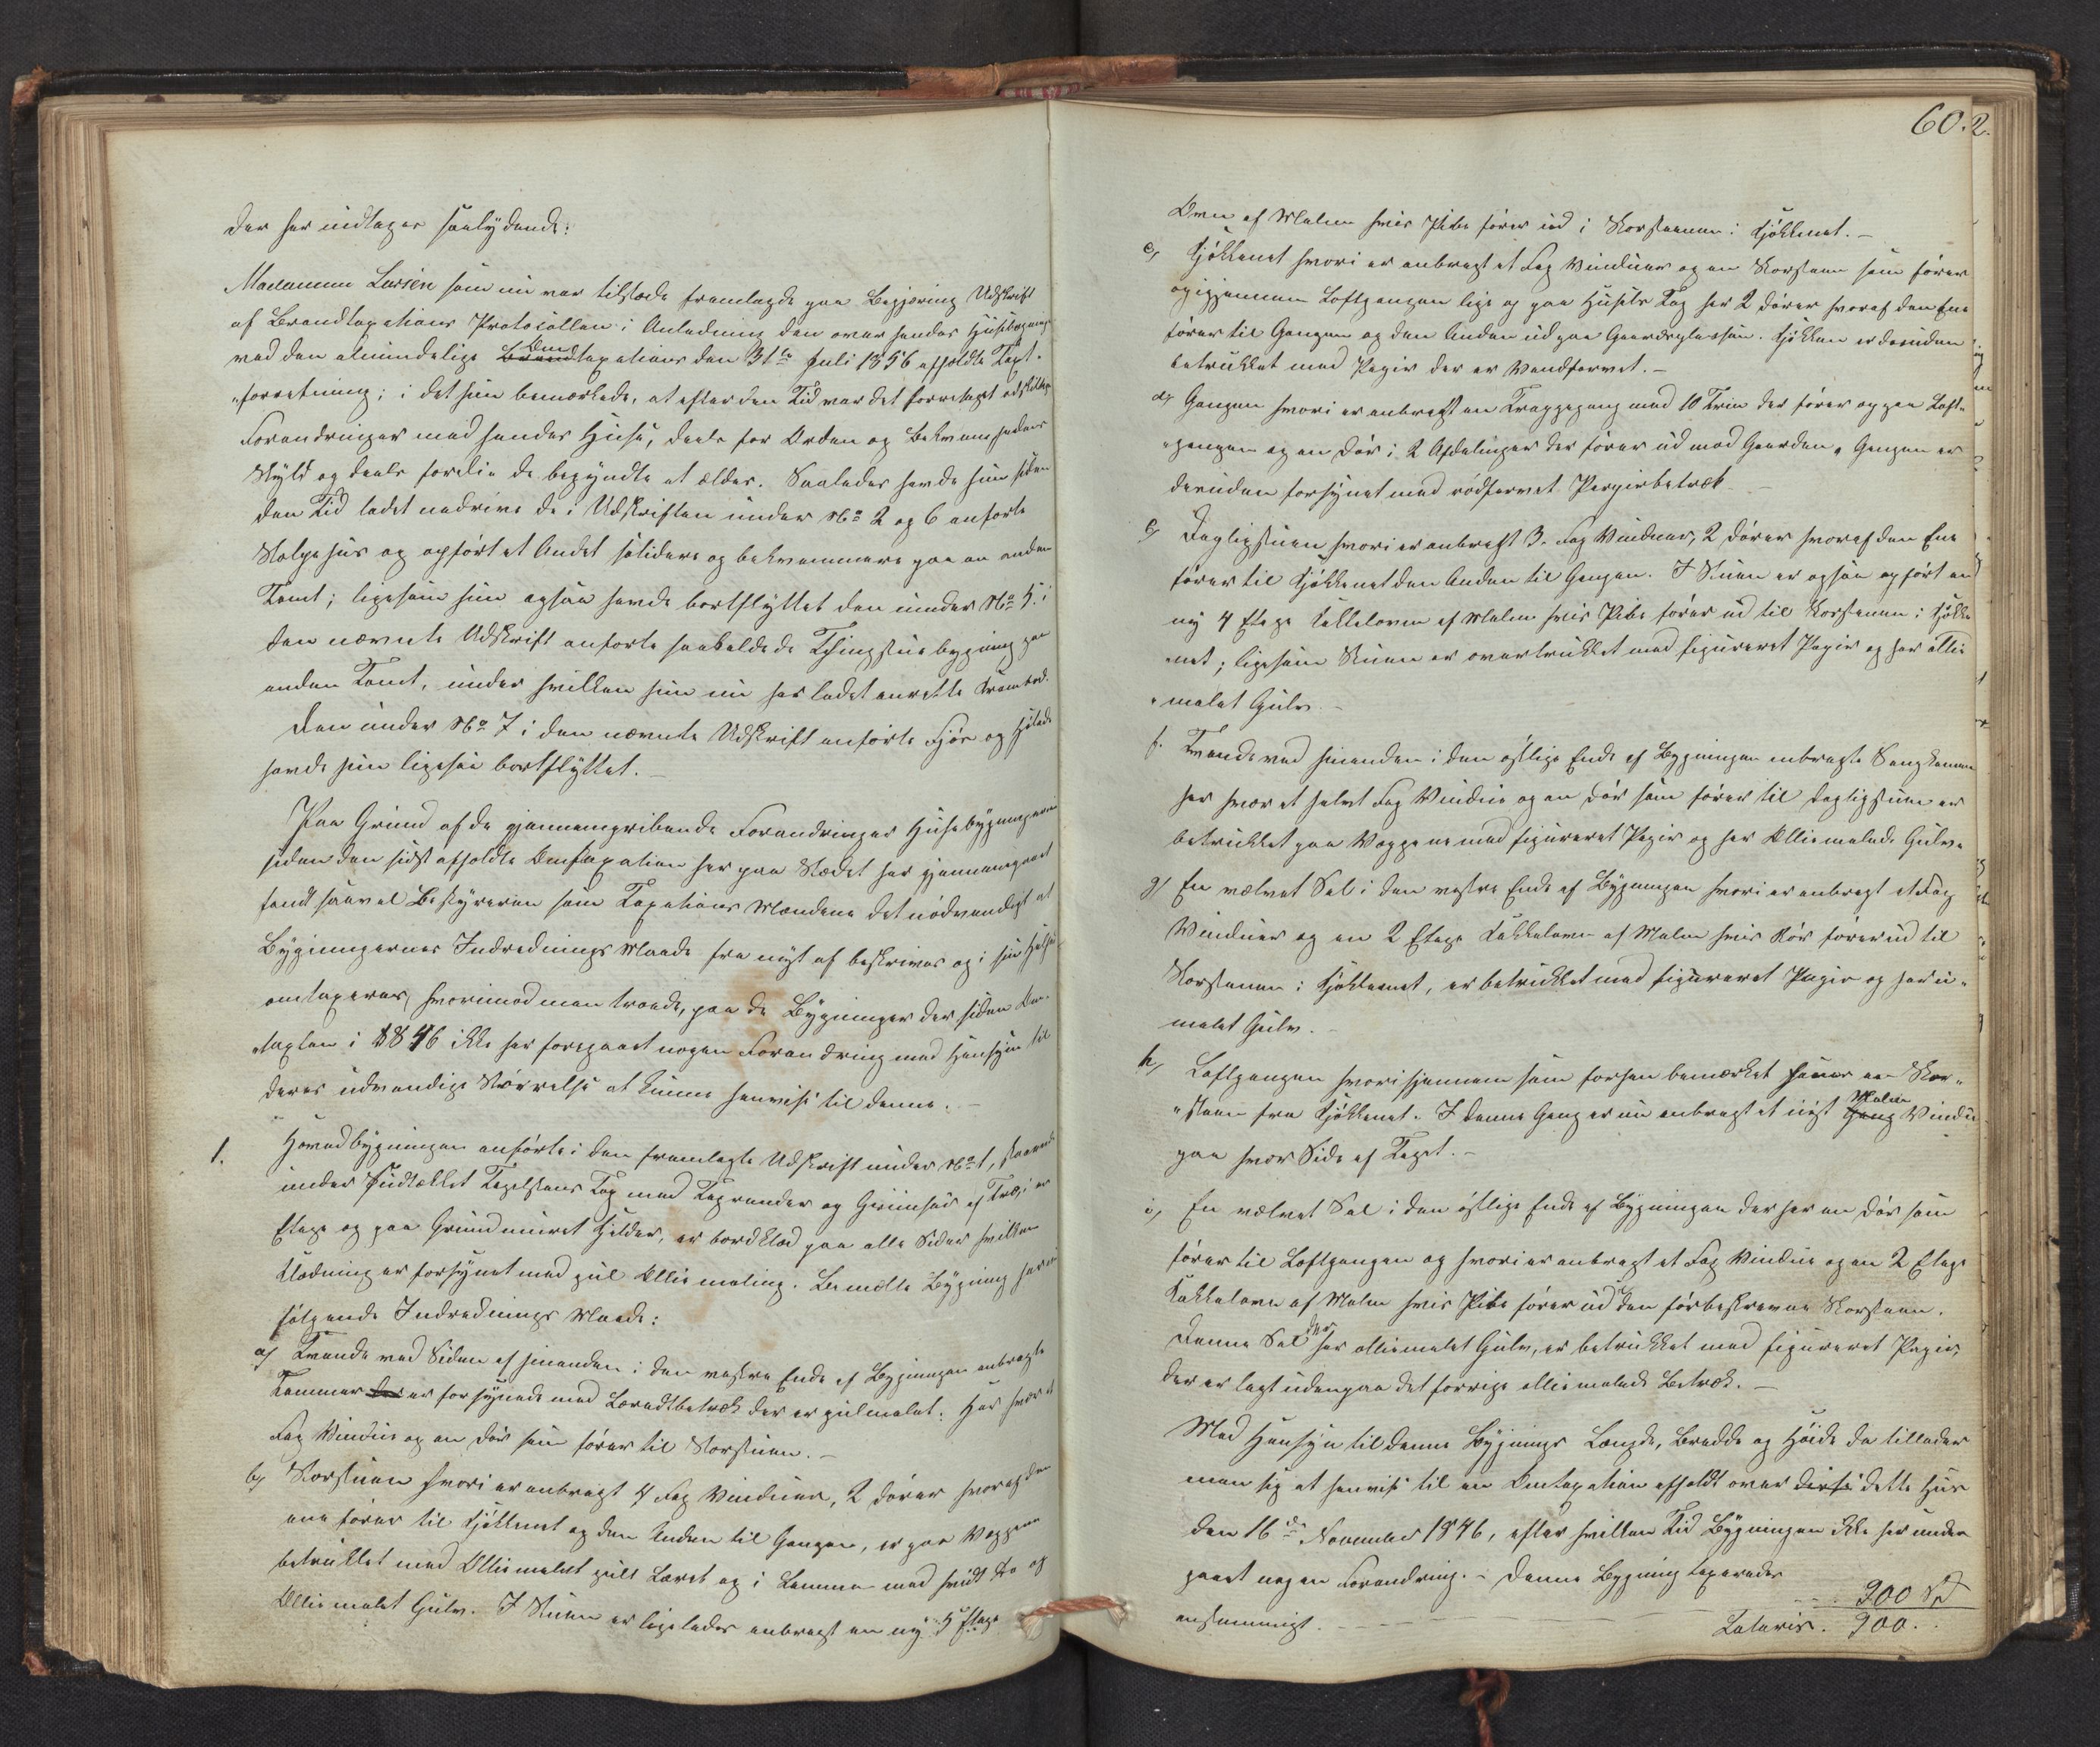 der her indtages saalydende:
Madamme Larsen som nu var tilstæde fremlagde paa Begjæring Udskrift
af Brandtaxations Protocollen i Anledning den over hendes Huusbygninger
ved den almindelige Brandtaxations Om den 31te Juli 1856 afholdte Taxt-
"forretning; i det hun bemærkede, at efter den Tid var det foretaget adskillige
Forandringer med hendes Huse, deels for Orden og Bekvemheds
Skyld og deels fordi de begyndte at ældes. Saaledes havde hun siden
den Tid ladet nedrive de i Udskriften under No 2 og 6 anførte
Stolpehus og opført et Andet solidere og bekvemmere paa en anden
Tomt; ligesom hun ogsaa havde bortflyttet den under No 5. i
den nævnte Udskrift anførte saakaldede Thingstuebygning paa
anden Tomt, under hvilken hun nu har ladet anrette
Den under No 7 i den nævnte Udskrift anførte Fjøs og Hølade
havde hun ligesaa bortflyttet. –
Paa Grund af de gjennemgribende Forandringer Husebygningerne
siden den sidst afholdte Omtaxation her paa Stædet har gjennemgaaet
fandt saavel Bestyreren som Taxations Mændene det nødvendigt at
Bygningernes Indrednings Maade fra nyt af beskrives og i sin Helhed
omtaxeres, hvorimod man troede, paa de Bygninger der siden Om-
"taxten i 1846 ikke har foregaaet nogen Forandring med Hensyn til
deres udvendige Størrelse at kunne henvise til denne. –
1. Hovedbygningen anførte i den fremlagte Udskrift under No 1, staaende
under Tagsteens Tag med Tagrender og af Træ, i er
Etage og paa Grundmuret Kjelder, er bordklæd paa alle Sider hvilken
Klædning er forsynet med gul Olliemaling. Bemeldte Bygning har
følgende Indrednings Maade:
a) Tvende ved Siden af hinanden i den vestre Ende af Bygningen anbragte
Kammer der er forsynede med Lærredsbetræk der er gulmalet: Har hver et
Fag Vindue og en Dør som fører til Storstuen. –
b) Storstuen hvori er anbragt 4 Fag Vinduer, 2 Dører hvoraf den
ene fører til Kjøkkenet og den Anden til Gangen, er paa Væggene
betrukket med Olliemalet gult Lærret og i Lemmen med hvidt do og
Olliemalet Gulv. I Stuen er ligeledes anbragt en ny 5 Etage
60. 2.
Ovn af Malm hvis Pibe fører ind i Skorstenen i Kjøkkenet. –
c) Kjøkkenet hvori er anbragt et Fag Vinduer og en Skorsteen som fører
op igjennem Loftgangen lige op paa Husets Tag har 2 Dører hvoraf den Ene
fører til Gangen og den Anden ud paa Gaardspladsen. Kjøkken er desuden
betrukket med Papir der er Vandfarvet. –
d) Gangen hvori er anbragt en Trappegang med 10 Trin der fører op paa Loft-
"gangen og en Dør i 2 Afdelinger der fører ud mod Gaarden, Gangen er
desuden forsynet med rødfarvet Papirbetræk –
e) Dagligstuen hvori er anbragt 3. Fag Vinduer, 2 Dører hvoraf den Ene
fører til Kjøkkenet den Anden til Gangen. I Stuen er ogsaa opført en
ny 4 Etage Kakkelovn af Malm hvis Pibe fører ud til Skorstenen i Kjøkke
"net; ligesom Stuen er overtrukket med figureret Papir og har ollie
"malet Gulv. –
f. Tvende ved hinanden i den østlige Ende af Bygningen anbragte Sengkamme
har hver et halvt Fag Vindue og en Dør som fører til Dagligstuen er
betrukket paa Væggene med figureret Papir og har Olliemalede Gulve
g) En vælvet Sal i den vestre Ende af Bygningen hvori er anbragt et Fag
Vinduer og en 2 Etage Kakkelovn af Malm hvis Rør fører ud til
Skorstenen i Kjøkkenet, er betrukket med figureret Papir og har u-
malet Gulv. –
h) Loftgangen hvori gjennem som forhen bemærket fører en Skor-
"steen fra Kjøkkenet. I denne Gang er nu anbragt et nyt Gang Malm Vindu
paa hver Side af Taget. –
i) En vælvet Sal i den østlige Ende af Bygningen der har en Dør som
fører til Loftgangen og hvori er anbragt et Fag Vindue og en 2 Etage
Kakkelovn af Malm hvis Pibe fører ud i den førbeskrevne Skorsteen.
Denne Sal der har olliemalet Gulv, er betrukket med figureret Papir,
der er lagt udenpaa det forrige olliemalede Betræk. –
Med Hensyn til denne Bygnings Længde, Bredde og Høide da tillader
man sig at henvise til en Omtaxation afholdt over disse dette Huus
den 16de November 1846, efter hvilken Tid Bygningen ikke har under
gaaet nogen Forandring. – Denne Bygning taxeredes
enstemmigt. – – – 900 Sp
Lateris. 900.